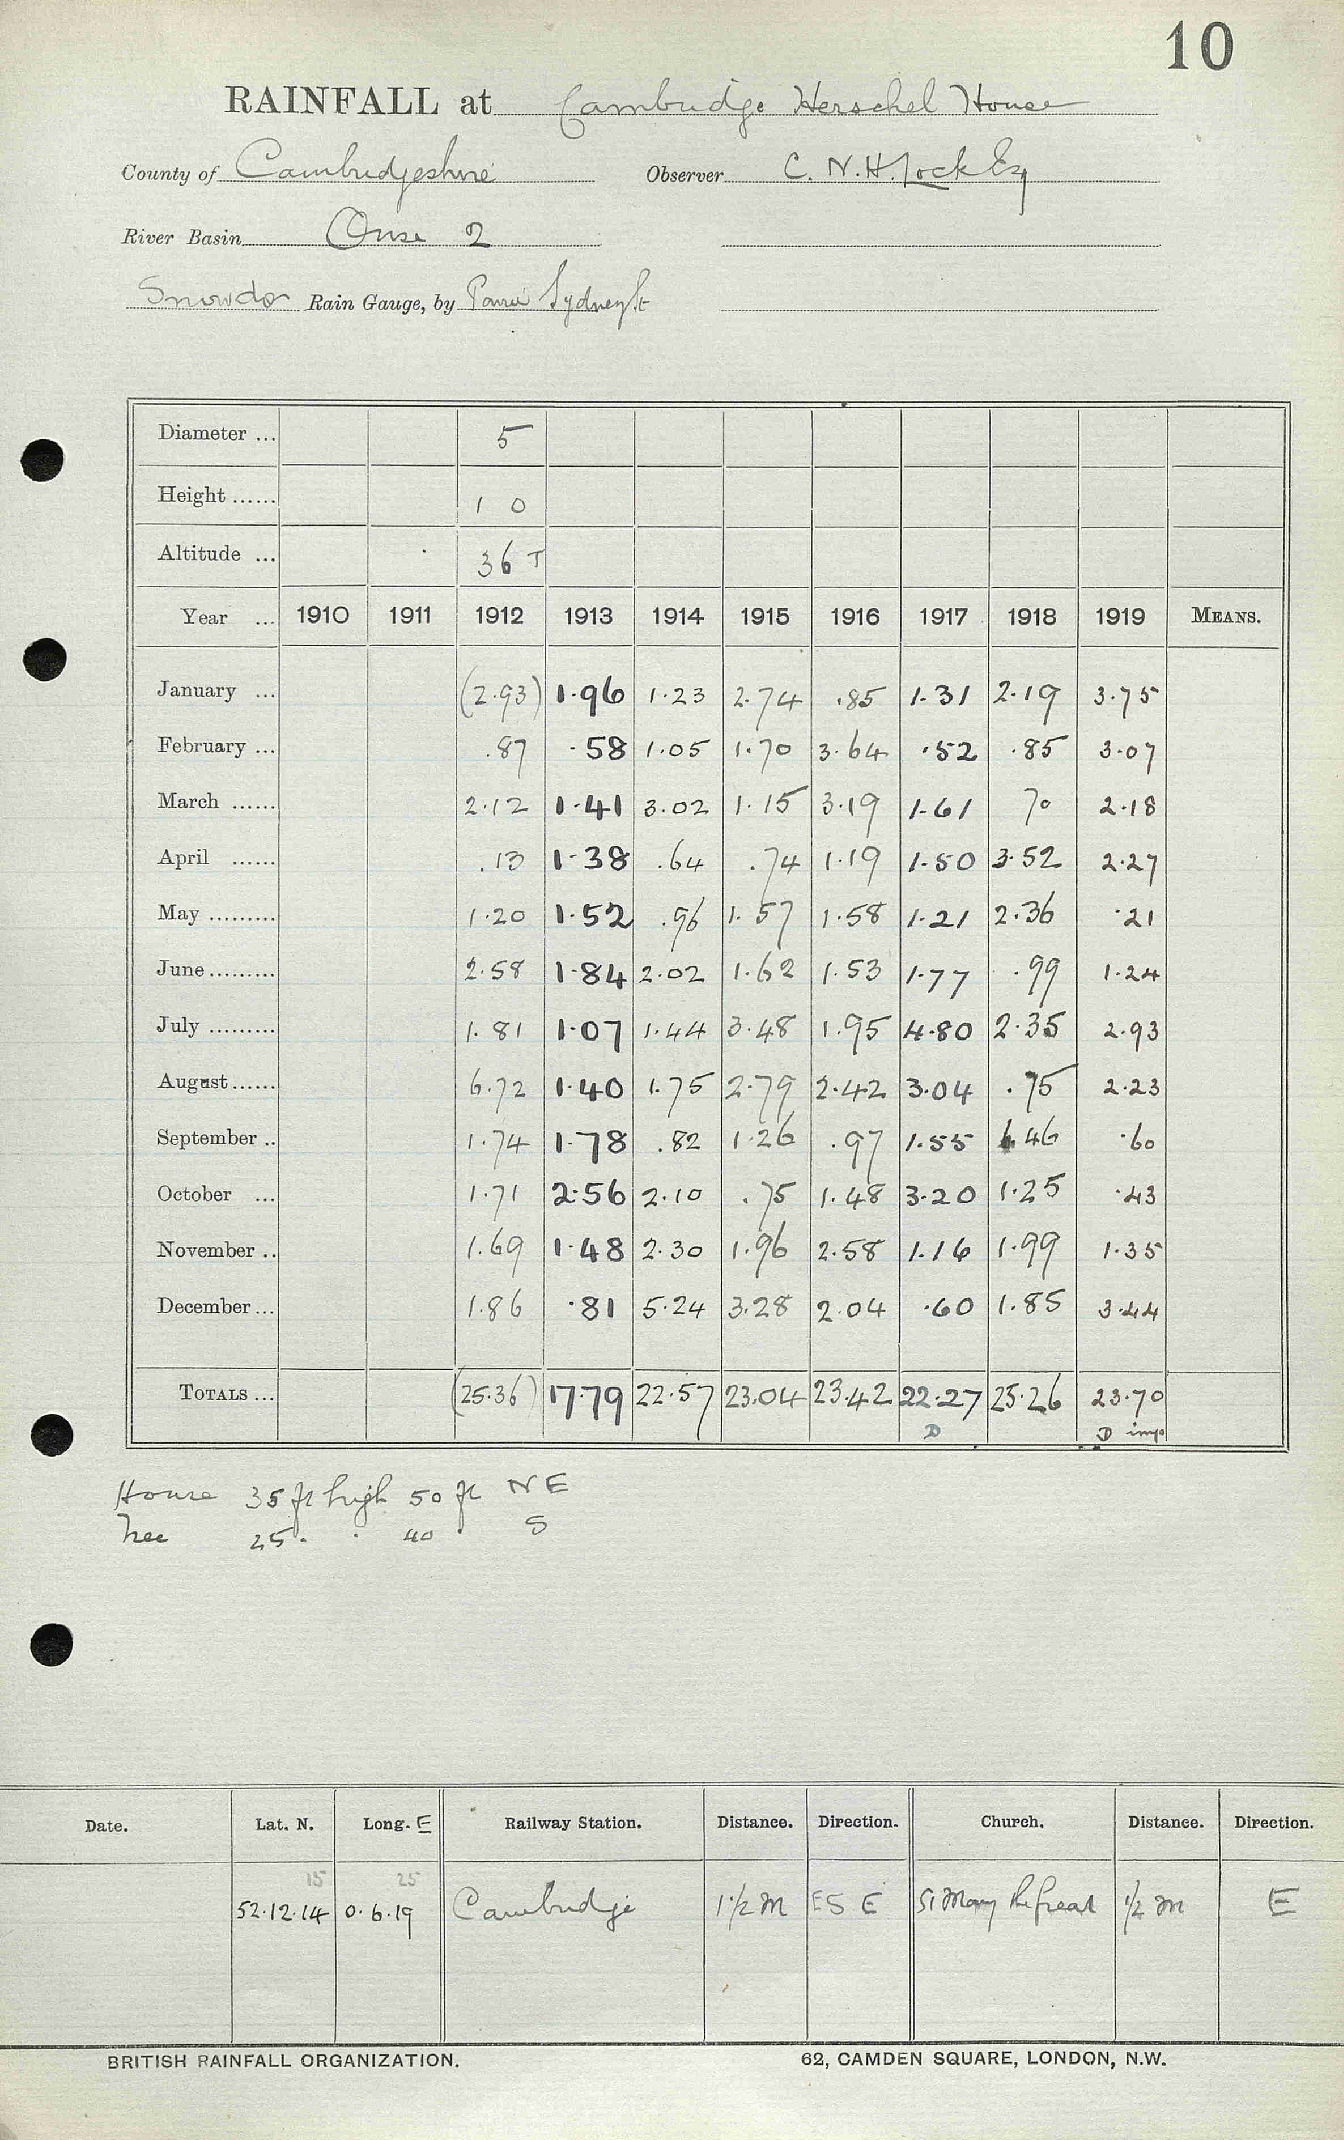 10
RAINFALL at Cambridge Herschel House
County of Cambridgeshire Observer C. N. H. Lock Esq
River Basin Ouse 2
Snowdon Rain Gauge, by
Diameter ... 5
Height ...... 1 0
Altitude ... 36 T
Year ... 1910 1911 1912 1913 1914 1915 1916 1917 1918 1919 MEANS.
January ... (2.93) 1.96 1.23 2.74 .85 1.31 2.19 3.75
February ... .87 .58 1.05 1.70 3.64 .52 .85 3.07
March ...... 2.12 1.41 3.02 1.15 3.19 1.61 70 2.18
April ...... .13 1.38 .64 .74 1.19 1.50 3.52 2.27
May ......... 1.20 1.52 .96 1.57 1.58 1.21 2.36 .21
June ......... 2.58 1.84 2.02 1.62 1.53 1.77 .99 1.24
July ......... 1.81 1.07 1.44 3.48 1.95 4.80 2.35 2.93
August ...... 6.72 1.40 1.75 2.79 2.42 3.04 .75 2.23
September .. 1.74 1.78 .82 1.26 .97 1.55 6.46 .60
October ... 1.71 2.56 2.10 .75 1.48 3.20 1.25 .43
November .. 1.69 1.48 2.30 1.96 2.58 1.16 1.99 1.35
December ... 1.86 .81 5.24 3.28 2.04 .60 1.85 3.44
TOTALS ... (25.36) 17.79 22.57 23.04 23.42 22.27 25.26 23.70
D D imp
House 35 ft high 50 ft N E
Tree 25 " " 40 " S
Date. Lat. N. Long. E Railway Station. Distance. Direction. Church. Distance. Direction.
15 25
52.12.14 0.6.19 Cambridge 1½ M E S E St Mary the Great ½ m E
BRITISH RAINFALL ORGANIZATION. 62, CAMDEN SQUARE, LONDON, N.W.